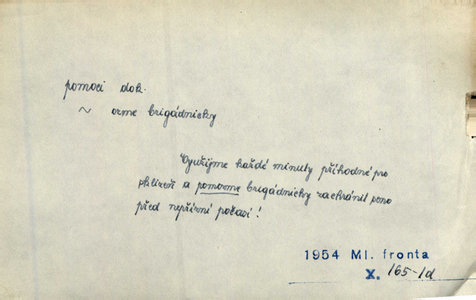 pomoci dok.
~ ozme brigádnicky
Využijme každé minuty příhodné pro
sklizeň a pomozme brigádnicky zachránit seno
před nepřízní počasí!
1954 Ml. fronta
X. 165-1d